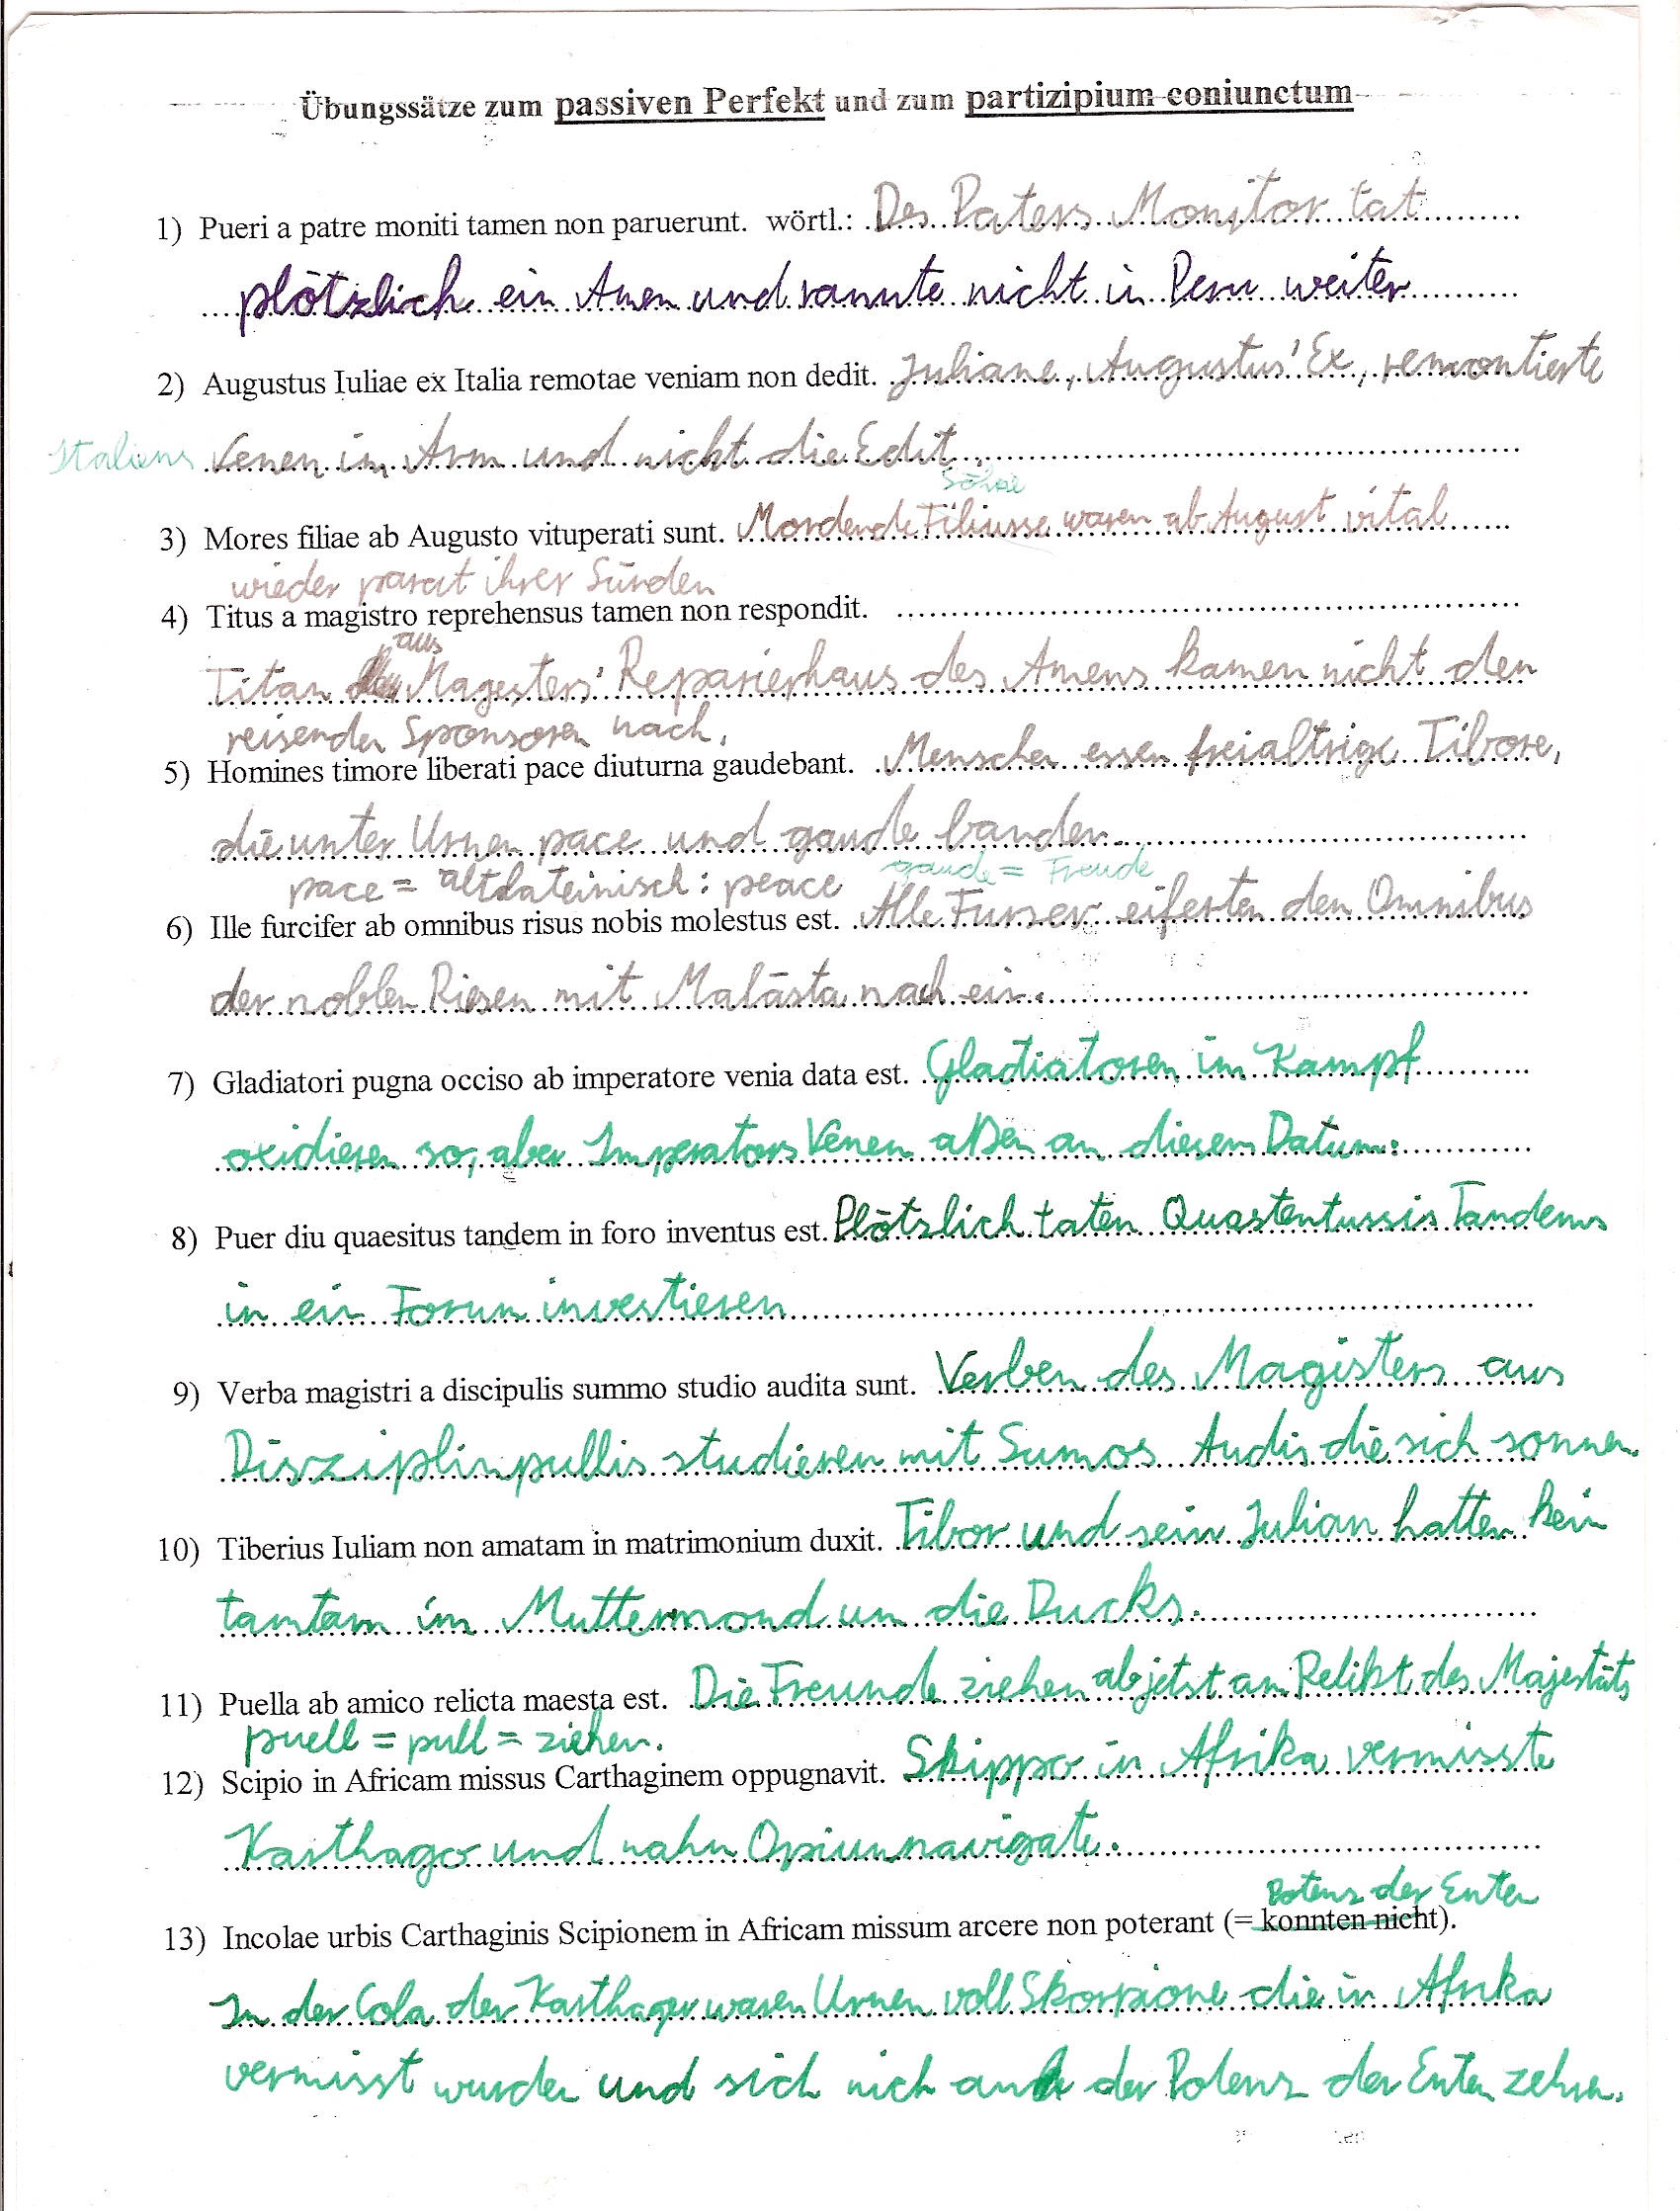 Übungssätze zum passiven Perfekt und zum partizipium coniunctum
1) Pueri a patre moniti tamen non paruerunt. wörtl.: Des Paters Monitor tat
plötzlich ein Amen und rannte nicht in Peru weiter
2) Augustus Iuliae ex Italia remotae veniam non dedit. Juliane, Augustus' Ex, remontierte
Italiens Venen im Arm und nicht die Edit.
Söhne
3) Mores filiae ab Augusto vituperati sunt. Mordende Filiusse waren ab August vital
wieder parat ihrer Sünden
4) Titus a magistro reprehensus tamen non respondit.
aus
Titan Magesters' Reparierhaus des Amens kamen nicht den
reisenden Sponsoren nach.
5) Homines timore liberati pace diuturna gaudebant. Menschen essen freialtrige Tibore,
die unter Urnen pace und gaude banden.
pace = altlateinisch: peace gaude = Freude
6) Ille furcifer ab omnibus risus nobis molestus est. Alle Furzer eiferten den Omnibus
der noblen Riesen mit Malästa nach ein.
7) Gladiatori pugna occiso ab imperatore venia data est. Gladiatoren im Kampf
oxidieren so, aber Imperators Venen aßen an diesem Datum.
8) Puer diu quaesitus tandem in foro inventus est. Plötzlich taten Quastentussis Tandems
in ein Forum investieren
9) Verba magistri a discipulis summo studio audita sunt. Verben des Magisters aus
Disziplinpullis studieren mit Sumos Audis die sich sonnen.
10) Tiberius Iuliam non amatam in matrimonium duxit. Tibor und sein Julian hatten kein
tamtam im Muttermond um die Ducks.
11) Puella ab amico relicta maesta est. Die Freunde ziehen ab jetst am Relikt des Majestäts
puell = pull = ziehen.
12) Scipio in Africam missus Carthaginem oppugnavit. Skippo in Afrika vermisste
Karthago und nahm Opiumnavigate.
Potenz der Enten
13) Incolae urbis Carthaginis Scipionem in Africam missum arcere non poterant (= konnten nicht).
In der Cola der Karthager waren Urnen voll Skorpione die in Afrika
vermisst wurden und sich nich an der Potenz der Enten zehrn.